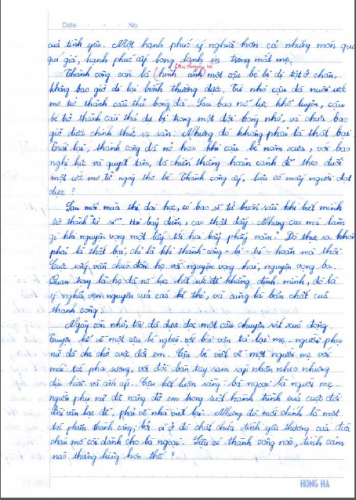 Date No.
của tình yêu. Một hạnh phúc ý nghĩa hơn cả những món quà
quí giá, hạnh phúc ấy long lanh in trong mắt mẹ.
Thành công còn là hình ảnh một cậu bé bị dị tật ở chân,
không bao giờ đi lại bình thường được. Từ nhỏ cậu đã nuôi ước
mơ trở thành cầu thủ bóng đá. Sau bao nỗ lực, khổ luyện, cậu
bé trở thành cầu thủ dự bị trong một đội bóng nhỏ, và chưa bao
giờ được chính thức ra sân. Nhưng đó không phải là thất bại.
Trái lại, thành công đã nở hoa khi cậu bé năm xưa, với bao
nghị lực và quyết tâm, đã chiến thắng hoàn cảnh để theo đuổi
một ước mơ từ ngày thơ bé. Thành công ấy, liệu có mấy người đạt
được ?
Sau mỗi mùa thi đại học, có bao "sĩ tử" buồn rầu khi biết mình
trở thành "tử sĩ". Hai bảy điểm, cao thật đấy. Nhưng cao mà làm
gì khi nguyện vọng một lấy tới hai bảy phẩy năm? Đó thực ra không
phải là thất bại, chỉ là khi thành công bị trì hoãn mà thôi.
Cuộc sống vẫn chào đón họ với nguyện vọng hai, nguyện vọng ba.
Quan trọng là họ đã nỗ lực hết sức để khẳng định mình. Đó là
ý nghĩa vẹn nguyên của các kì thi, và cũng là bản chất của
thành công.
Ngày còn nhỏ, tôi đã được đọc một câu chuyện rất xúc động.
Truyện kể về một cậu bé nghèo với bài văn tả lại mẹ - người phụ
nữ đã che chở cuộc đời em. Cậu bé viết về một người mẹ với
mái tóc pha sương, với đôi bàn tay ram ráp nhăn nheo nhưng
dịu hiền và ấm áp. Cậu kết luận rằng: bà ngoại là người mẹ -
người phụ nữ đã nâng đỡ em trong suốt hành trình của cuộc đời.
Bài văn lạc đề, phải về nhà viết lại. Nhưng đó mới chính là một
tác phẩm thành công, bởi vì ở đó chất chứa tình yêu thương của đứa
cháu mồ côi dành cho bà ngoại. Liệu có thành công nào, tình cảm
nào thiêng liêng hơn thế ?
HONG HA